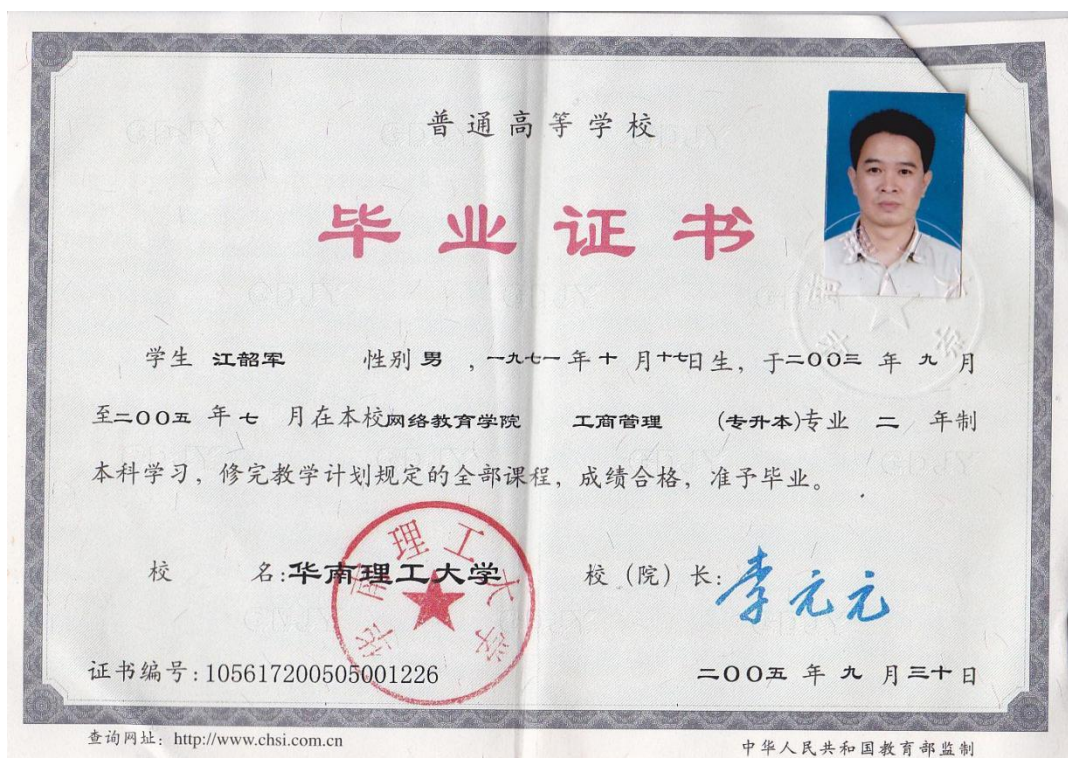 普通高等学校
毕业证书
学生 江韶军 性别 男 ，一九七一 年 十 月 十七日 生，于二00三 年 九 月
至二00五 年 七 月在本校网络教育学院 工商管理 (专升本)专业 二 年制
本科学习，修完教学计划规定的全部课程，成绩合格，准予毕业。
校 名:华南理工大学 校（院）长:李元元
华南理工大学
证书编号:105617200505001226 二00五 年 九 月三十日
查询网址：http://www.chsi.com.cn 中华人民共和国教育部监制